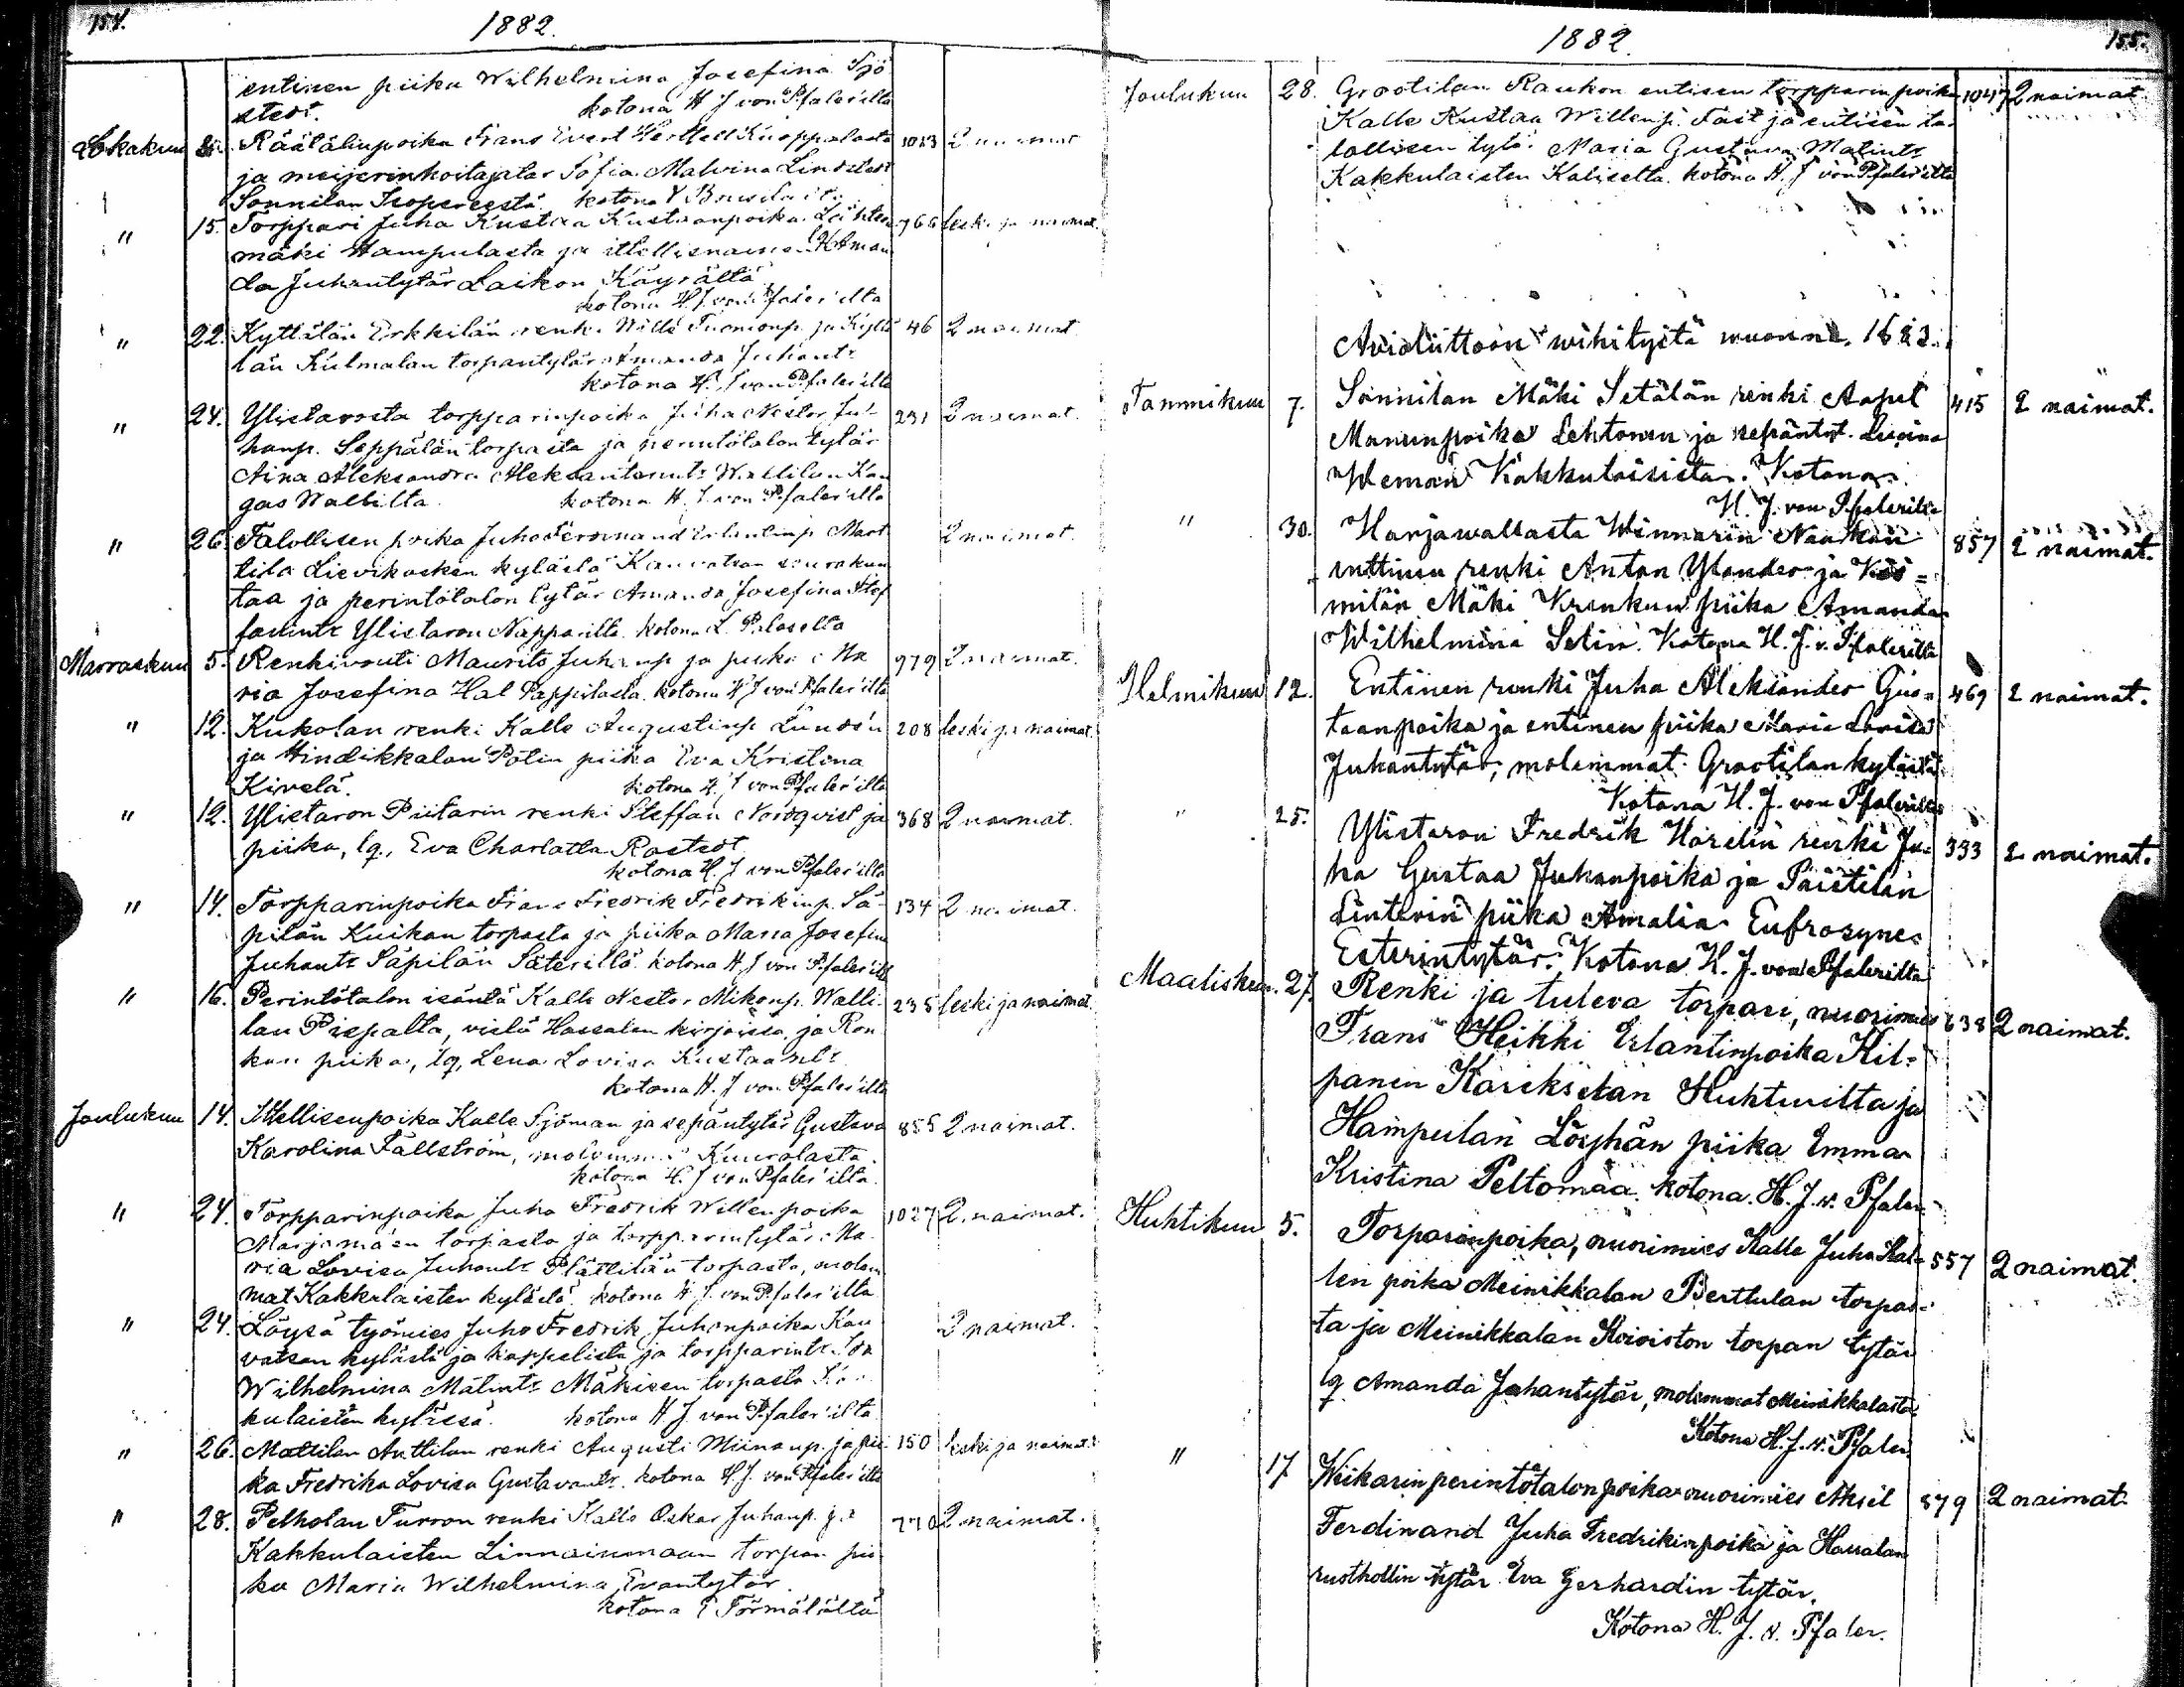 154.
1882.
entinen piika Wilhelmina Josefina Sjö
stedt. kotona H J von Pfaler'ilta
Lokakuun Räätälinpoika Frans Evert Herttell Kuoppalasta 1023 2 naimat
ja meijerinhoitajatar Sofia Malvina Lindstedt
Sonnilan Isopereestä. kotona
" 15. Torppari Juha Kustaa Kustaanpoika Lähteen 766 leski ja naimat.
mäki Hampulasta ja itsellisnainen Aman
da Juhantytär Laikon Käyrältä
kotona H. J. von Pfaler'ilta
" 22. Kyttälän Erkkilän renki Wille Tuomonp. ja Kyttä 46 2 naimat.
län Kulmalan torpantytär Amanda Juhantr
kotona H. J von Pfaler'ilta
" 24. Ylistarosta torpparinpoika Juha Nestor Ju- 231 2 naimat.
hanp. Seppälän torpasta ja perintötalon tytär
Aina Aleksandra Aleksanterintr Wallilan Kan
gas Wallilta. kotona H. J. von Pfaler'ilta
" 26. Talollisen poika Juho Ferdinand Erlantinp. Mart 2 naimat.
tila Lievikosken kylästä Kauvatsan seurakun
taa ja perintötalon tytär Amanda Josefina Stef
fanintr Ylistaron Napparilta. kotona L. Palosella
Marraskuun 5. Renkivouti Maurits Juhanp ja piika Ma 979 2 naimat.
ria Josefina Hal Pappilasta. kotona H J von Pfaler'ilta
" 12. Kukolan renki Kalle Augustinp. Lundén 208 leski ja naimat.
ja Hindikkalan Potin piika Eva Kristina
Kivelä. kotona H. J von Pfaler'ilta
" 12. Ylistaron Piitarin renki Steffan Nordqvist ja 368 2 naimat.
piika, lq., Eva Charlotta Rostedt
kotona H. J von Pfaler'ilta
" 14. Torpparinpoika Frans Fredrik Fredrikinp. Sä- 134 2 naimat.
pilän Kuikan torpasta ja piika Maria Josefina
Juhantr Säpilän Säterillä. kotona H J von Pfaler'ilta
" 16. Perintötalon isäntä Kalle Nestor Mikonp. Walli- 235 leski ja naimat
lan Piispalta, vielä Hassalan kirjoissa, ja Ron
kan piika, lq, Lena Lovisa Kustaantr
kotona H. J von Pfaler'ilta
Joulukuu 14. Itsellisenpoika Kalle Sjöman ja sepäntytär Gustava 855 2 naimat.
Karolina Fällström, molemmat Kuurolasta.
kotona H. J von Pfaler'ilta.
" 24. Torpparinpoika Juha Fredrik Willenpoika 1027 2 naimat.
Marjamäen torpasta ja torpparintytär Ma-
ria Lovisa Juhantr Plättilän torpasta, molem
mat Kakkulaisten kylästä. kotona H J. von Pfaler'ilta
" 24. Löysä työmies Juho Fredrik Juhanpoika Kau 2 naimat.
vatsan kylästä ja kappelista ja torpparintr Ida
Wilhelmina Matintr Mäkisen torpasta Kak
kulaisten kylässä. kotona H J. von Pfaler'ilta
" 26. Mattilan Anttilan renki Augusti Miinanp. ja pii- 150 leski ja naimat.
ka Fredrika Lovisa Gustavantr. kotona H. J. von Pfaler'ilta
" 28. Pelholan Turron renki Kalle Oskar Juhanp. ja 770 2 naimat.
Kakkulaisten Linnainmaan torpan pii
ka Maria Wilhelmina Evantytär.
kotona Törmälältä
1882.
155.
Joulukuu 28. Grootilan Raukon entisen torpparin poika 1047 2 naimat
Kalle Kustaa Willenp. Fast ja entisen ta-
lollisen tytö. Maria Gustava Matintr
Kakkulaisten Kaliselta. kotona H. J von Pfaler'ilta
Avioliittoon wihityistä wuonna 1883.
Tammikuu 7. Sonnilan Mäki Setälän renki Aapel 415 2 naimat.
Manunpoika Lehtonen ja sepäntyt. Lusina
Weman Kakkulaisista. Kotona
H. J. von Pfalerilta
" 30. Harjawallasta Winnarin Naukkari 857 2 naimat.
enttinen renki Anton Ylander ja Köö=
milän Mäki Krenkun piika Amanda
Wilhelmina Selin. Kotona H. J. v. Pfalerilta
Helmikuu 12. Entinen renki Juha Aleksander Gus= 469 2 naimat.
taanpoika ja entinen piika Maria Lovisa
Juhantytär, molemmat Grootilan kylästä.
Kotona H. J. von Pfalerilta
" 25. Ylistaron Fredrik Horelin renki Ju= 333 2 naimat.
ha Gustaa Juhanpoika ja Päistilän
Linterin piika Amalia Eufrosyne
Esterintytär. Kotona H. J. von Pfalerilta
Maaliskuu. 27. Renki ja tuleva torpari, nuorimies 638 2 naimat.
Frans Heikki Erlantinpoika Kil=
panen Karekselan Huhturilta ja
Hampulan Löyhän piika Emma
Kristina Peltomaa. kotona. H. J. v. Pfaler.
Huhtikuu 5. Torparinpoika, nuorimies Kalle Juha Kal= 557 2 naimat.
len poika Meinikkalan Berttulan torpas=
ta ja Meinikkalan Koiviston torpan tytär
lq Amanda Juhantytär, molemmat Meinikkalasta.
Kotona H. J. v. Pfaler.
" 17. Wiikarin perintötalon poika nuorimies Aksil 879 2 naimat.
Ferdinand Juha Fredrikinpoika ja Haualan
rusthollin tytär Eva Gerhardin tytär.
Kotona H. J. v. Pfaler.